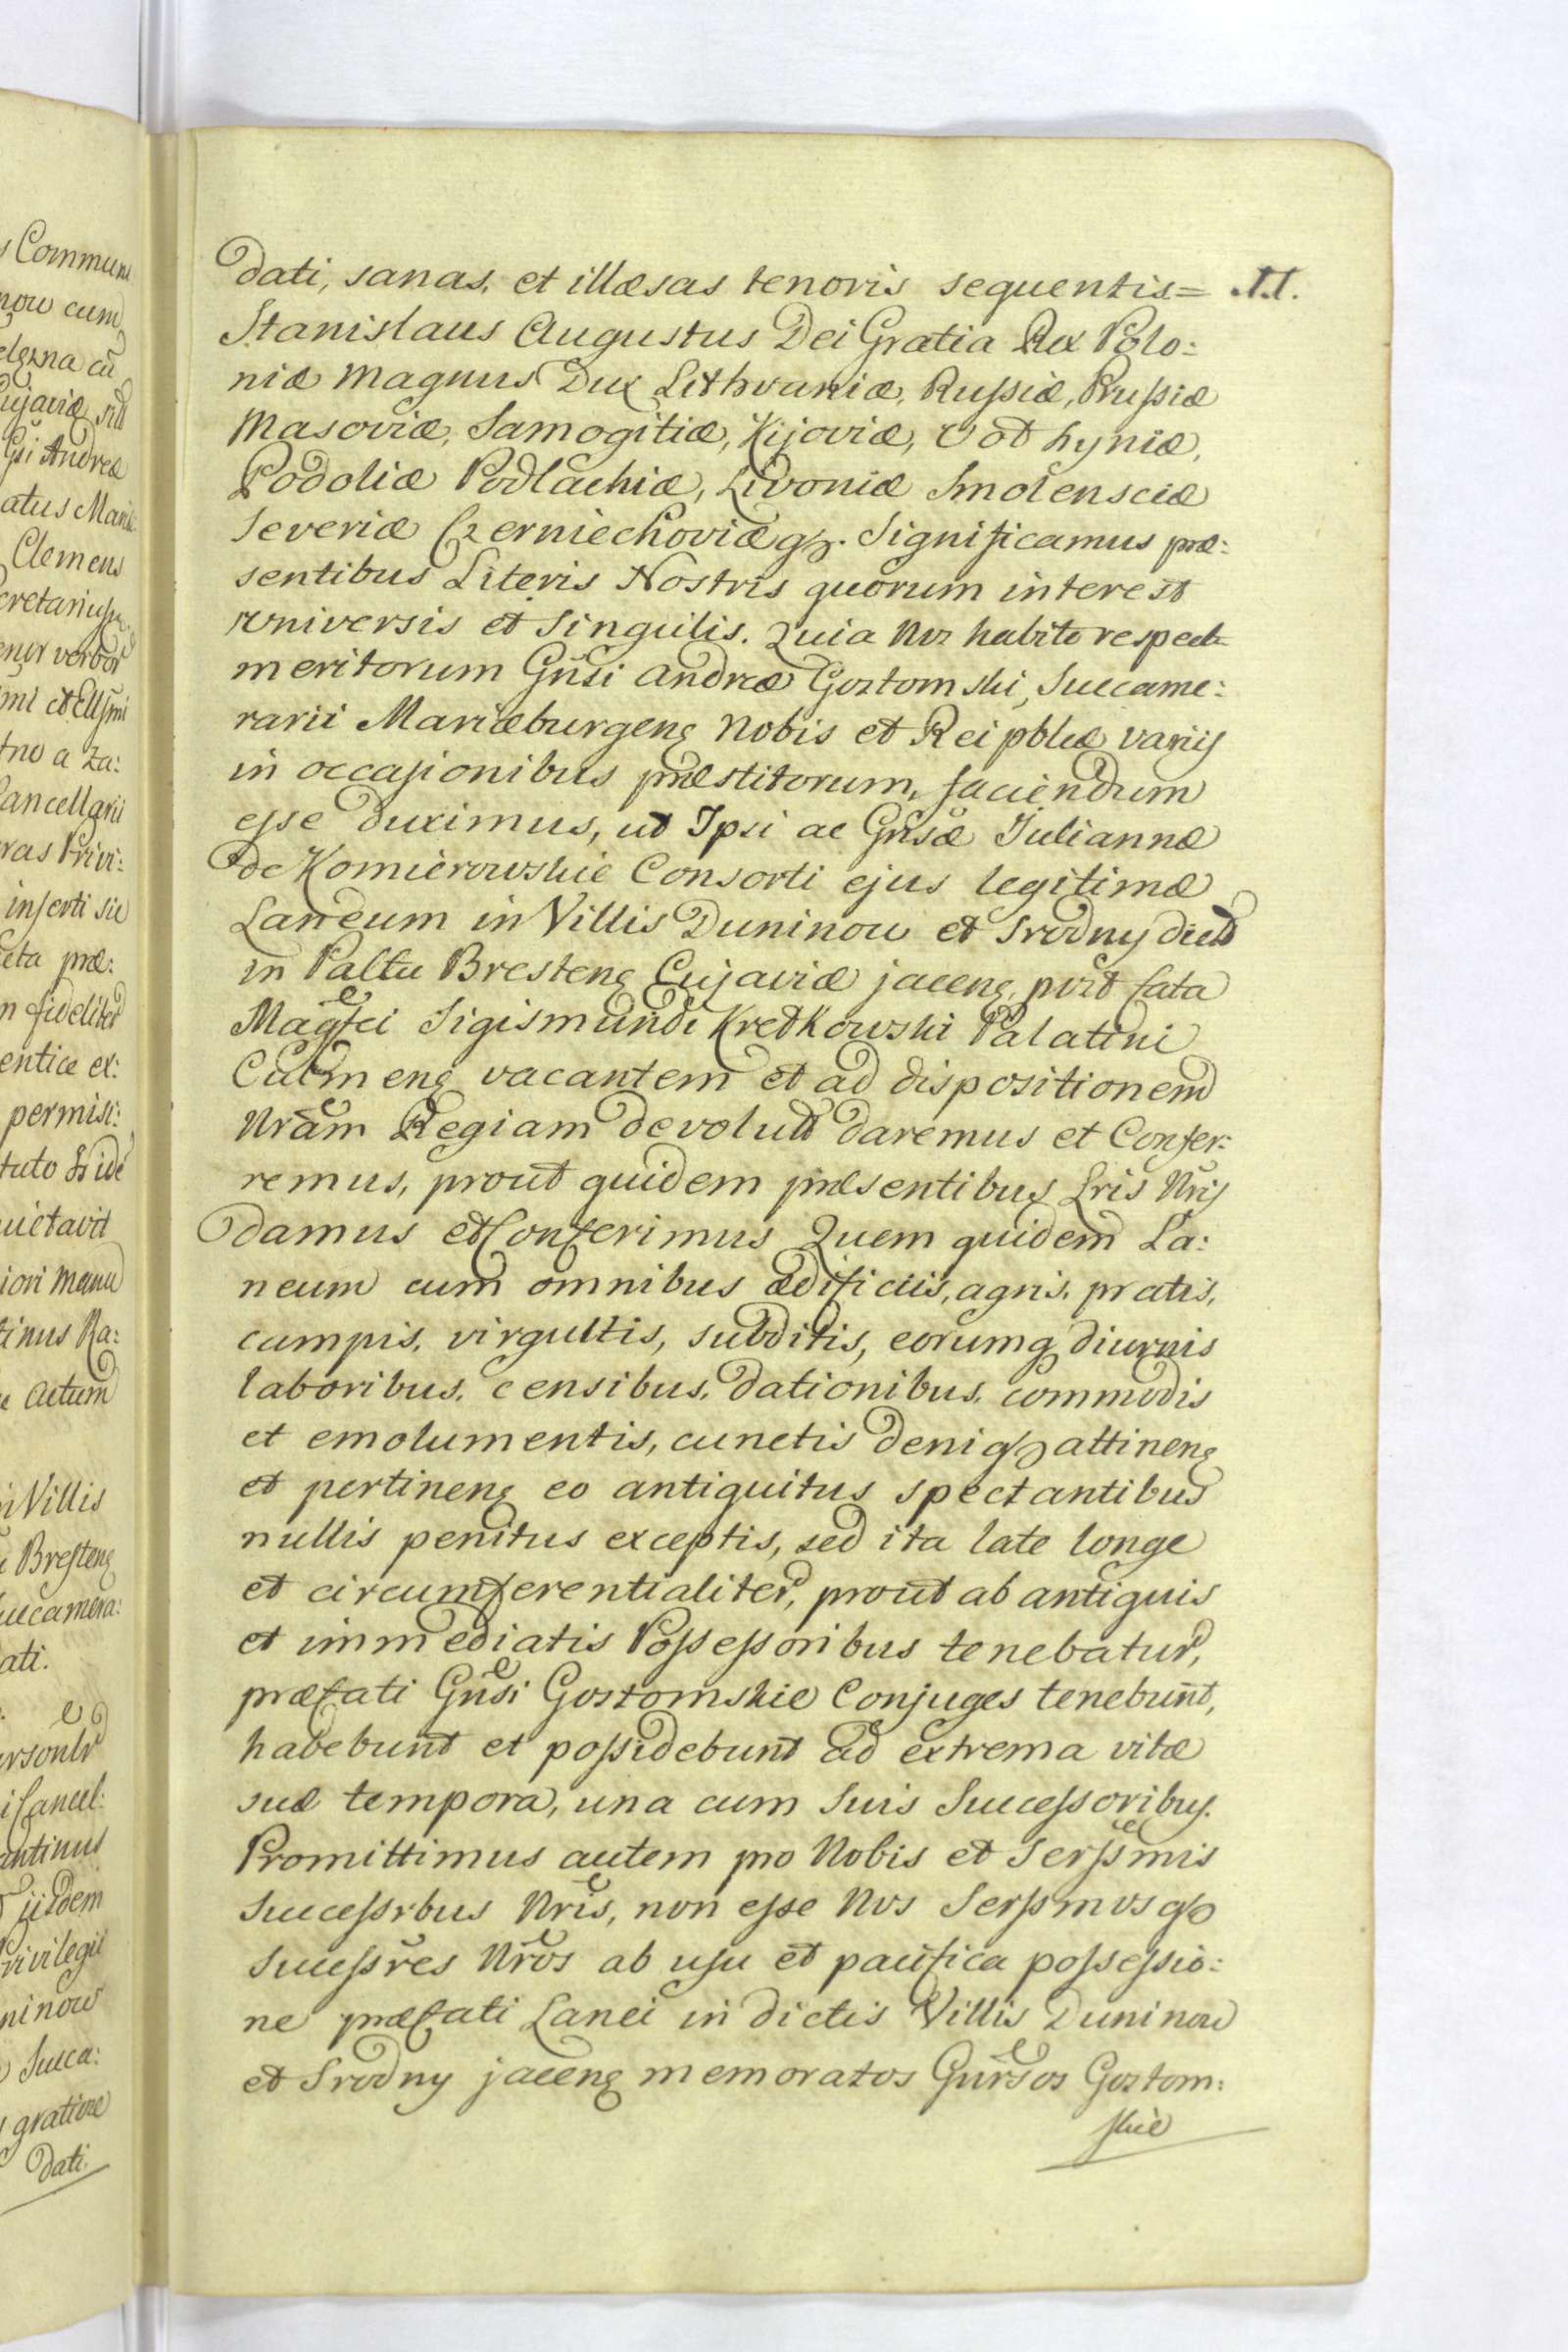 dati, sanas, et illæsas tenoris sequentis=
Stanislaus Augustus Dei Gratia Rex Polo:
niæ Magnus Dux Lithvaniæ, Rußiæ, Prußiæ
Masoviæ, Samogitiæ, Kijoviæ, Volhyniæ,
Podoliæ Podlachiæ, Livoniæ Smolensciæ
Severiæ Czerniechoviæq3. Significamus præ:
sentibus Literis Nostris quorum interest
Universis et Singulis. Quia Nos habito respect
meritorum Gnsi Andreæ Gostomski, Succame:
rarii Mariæburgenꝭ Nobis et Reipblcæ variis
in occasionibus præstitorum, faciendum
eße duximus, ut Ipsi ac Gnsæ Juliannæ
de Komierowskie Consorti ejus legitimæ
Laneum in Villis Duninow et Srodny dict
in Palttu Brestenꝭ Cujaviæ jacenꝭ, post fata
Magfci Sigismundi Kretkowski Palatini
Culmenꝭ vacantem et ad dispositionem
Nram Regiam devolutt daremus et Confer:
remus, prout quidem præsentibus Lris Nris
damus et Conferimus Quem quidem La:
neum cum omnibus ædificiis, agris, pratis,
campis, virgultis, subditis, eorumq diurnis
laboribus, censibus, dationibus, commodis
et emolumentis, cunctis deniq3 attinenꝭ
et pertinenꝭ eo antiquitus spectantibus
nullis penitus exceptis, sed ita late longe
et circumferentialiter, prout ab antiquis
et immediatis Poßeßoribus tenebatur,
præfati Gnsi Gostomskie Conjuges tenebunt,
habebunt et poßidebunt ad extrema vitæ
suæ tempora, una cum Suis Succeßoribus.
Promittimus autem pro Nobis et Serßmis
Succeßrbus Nris, non eße Nos Serßmosq3
Succeßres Nros ab usu et pacifica poßeßio:
ne præfati Lanei in dictis Villis Duninow
et Srodny jacenꝭ memoratos Gnrsos Gostom:
skie